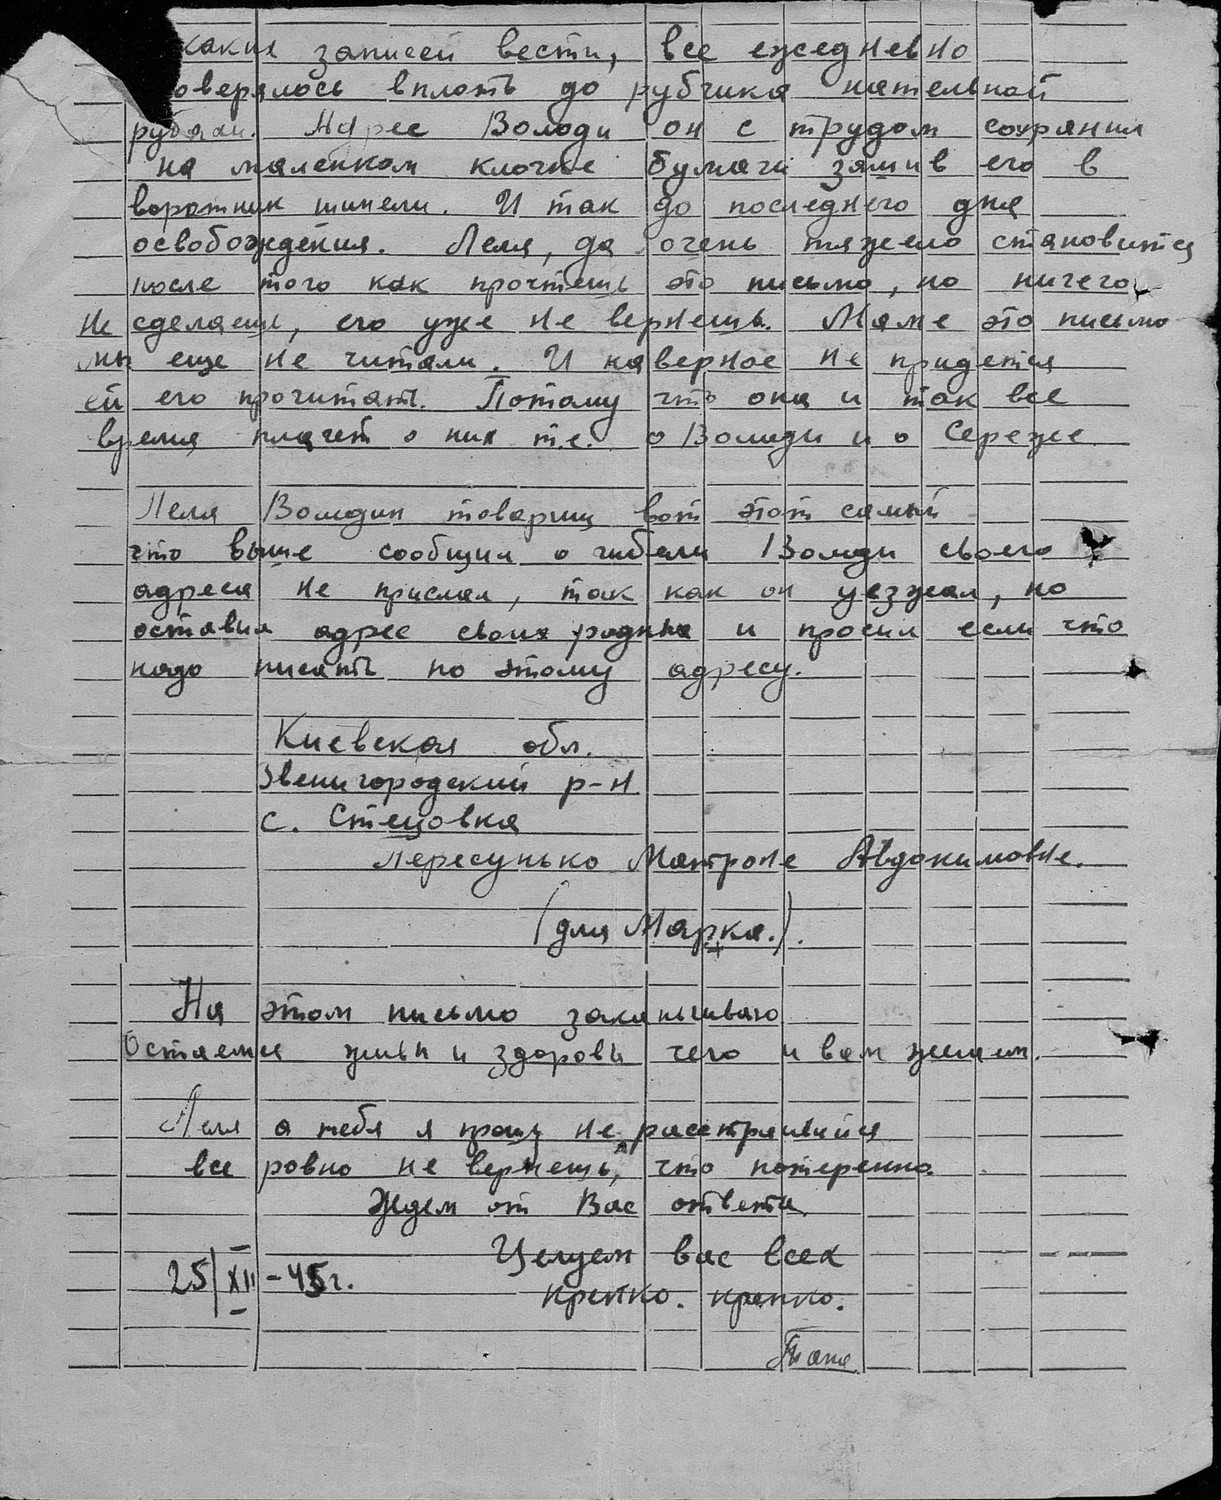 каких записей вести, все ежедневно
оверялось вплоть до рубчика нательной
рубахи. Адрес Володи он с трудом сохранил
на маленком клочке бумаги зашив его в
воротник шинели. И так до последнего дня
освобождения. Леля, да очень тяжело становится
после того как прочтешь это письмо, но ничего
не сделаешь, его уже не вернешь. Маме это письмо
мы еще не читали. И наверное не придется
ей его прочитать. Потому что она и так все
время плачет о них т.е. о Володи и о Сереже
Леля Володин товарищ вот этот самый
что выше сообщил о гибели Володи своего
адреса не прислал, так как он уезжал, но
оставил адрес своих родных и просил если что
надо писать по этому адресу.
Киевская обл.
Звенигородский р-н
с. Стецовка
Пересунько Матроне Авдокимовне.
(для Марка.).
На этом письмо заканчиваю
Остаемся живы и здоровы чего и вам желаем.
Леля а тебя я прошу не расстраивайся
все ровно не вернешь, что потеренно.
Ждем от Вас ответа
Целуем вас всех
25/XII-45г. крепко. крепко.
Таня